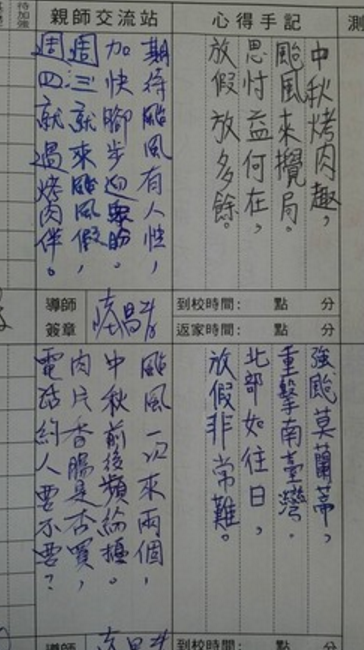 測
心得手記
親師交流站
待加強
中秋烤肉趣，
颱風來攪局。
思忖益何在，
放假放多餘。
期待颱風有人性，
加快腳步迎眾盼。
週三就來颱風假，
週四就過烤肉伴。
到校時間： 點 分
返家時間： 點 分
導師
簽章
強颱莫蘭蒂，
重擊南臺灣．
北部如往日，
放假非常難。
颱風一次來兩個，
中秋前後頻
肉片香腸是否買，
電話約人要不要？